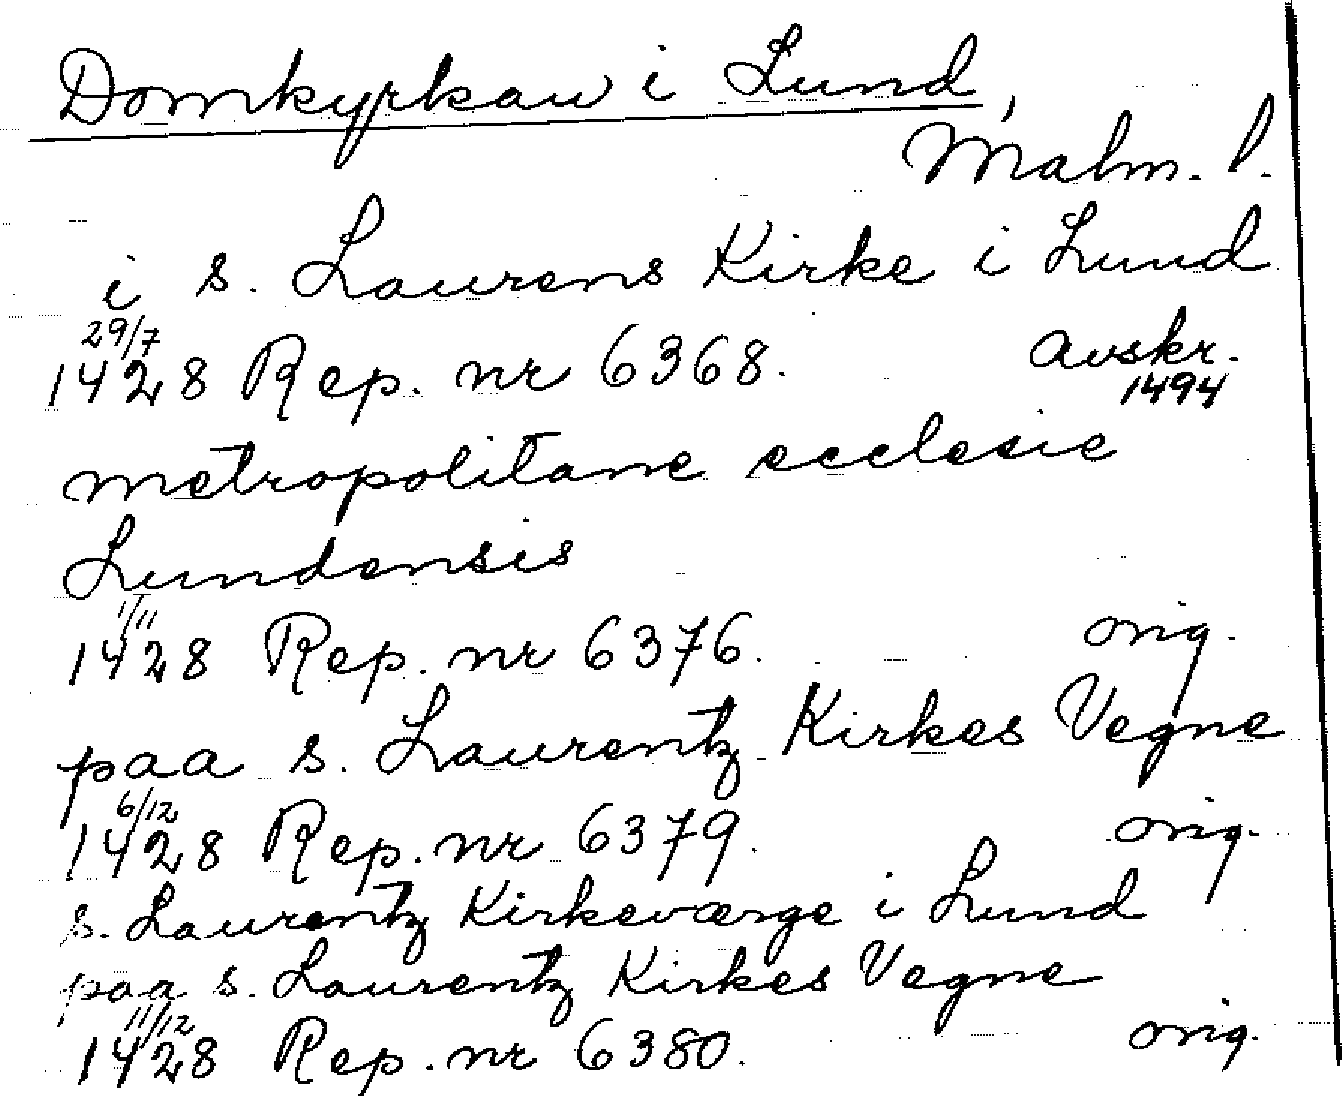 Domkyrkan i Lund,
Malm. l.
i s. Laurens Kirke i Lund
29/7
1428 Rep. nr 6368. Avskr.
1494
metropolitane ecclesie
Lundensis
1/11
1428 Rep. nr 6376. orig.
paa s. Laurentz Kirkes Vegne
6/12
1428 Rep. nr 6379. orig.
s. Laurentz Kirkeværge i Lund
paa s. Laurentz Kirkes Vegne
11/12
1428 Rep. nr 6380. orig.